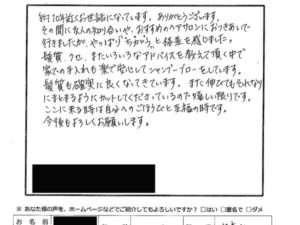 約10年近くお世話になっています。ありがとうございます。
その間に友人の知り合いや、おすすめのヘアサロンにおつきあいで
行きましたが、やっぱり"ちがう。"と格差を感じました。
髪質、クセ、またいろいろなアドバイスを教えて頂く中で
家での手入れも楽で安心してシャンプーブローをしています。
髪質も確実に良くなってきています。また伸びてもそれなり
にまとまるようにカットしてくださっているので嬉しい限りです。
ここに来る時は自分へのごほうびと至福の時です。
今後もよろしくお願いします。
※ あなた様の声を、ホームページなどでご紹介してもよろしいですか？ □はい □匿名で □ダメ
お 名 前